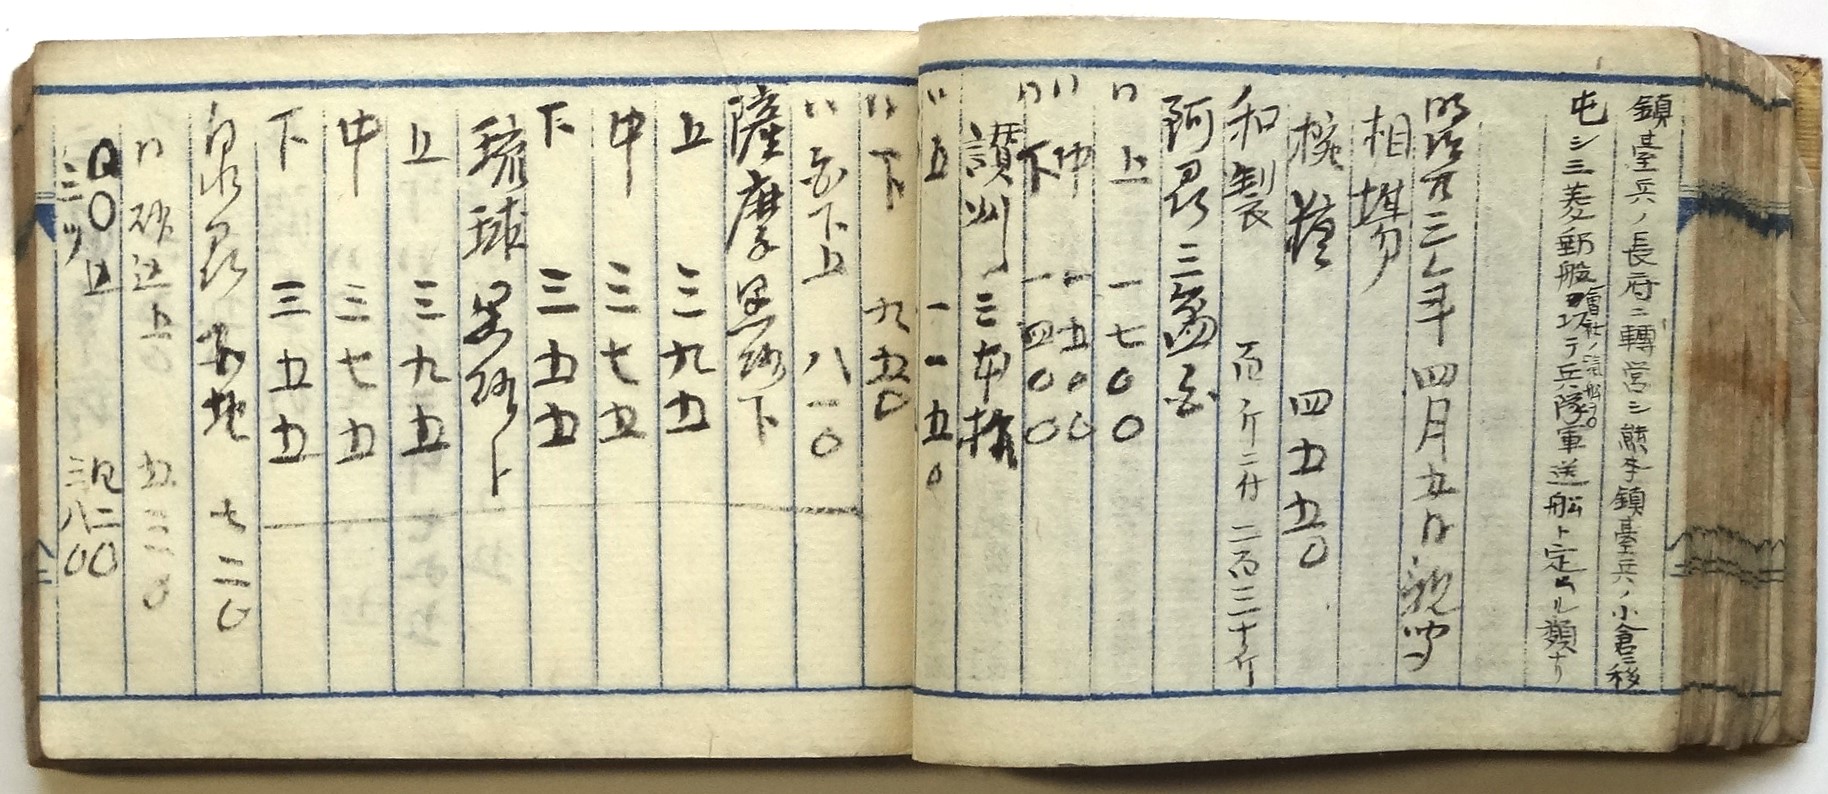 鎮臺兵ノ長府ニ轉営シ熊本鎮臺兵ノ小倉ニ移
屯シ三菱郵舩會社ノ テ兵隊軍送船ト定ムル類ナリ
明治 三年四月五日
相場
糖 四五五〇
和製 百斤ニ付 二百三十斤
阿晁三盆白
〃上 一七〇〇
〃中 一五〇〇
〃下 一四〇〇
讃州三本
〃五 一一五〇
〃下 九五〇
〃白下上 八一〇
薩摩黒砂下
上 三九五
中 三七五
下 三五五
琉球黒砂
上 三九五
中 三七五
下 三五五
泉 七二〇
〃 上 五三〇
〇上 四二〇
三ツ 三八〇